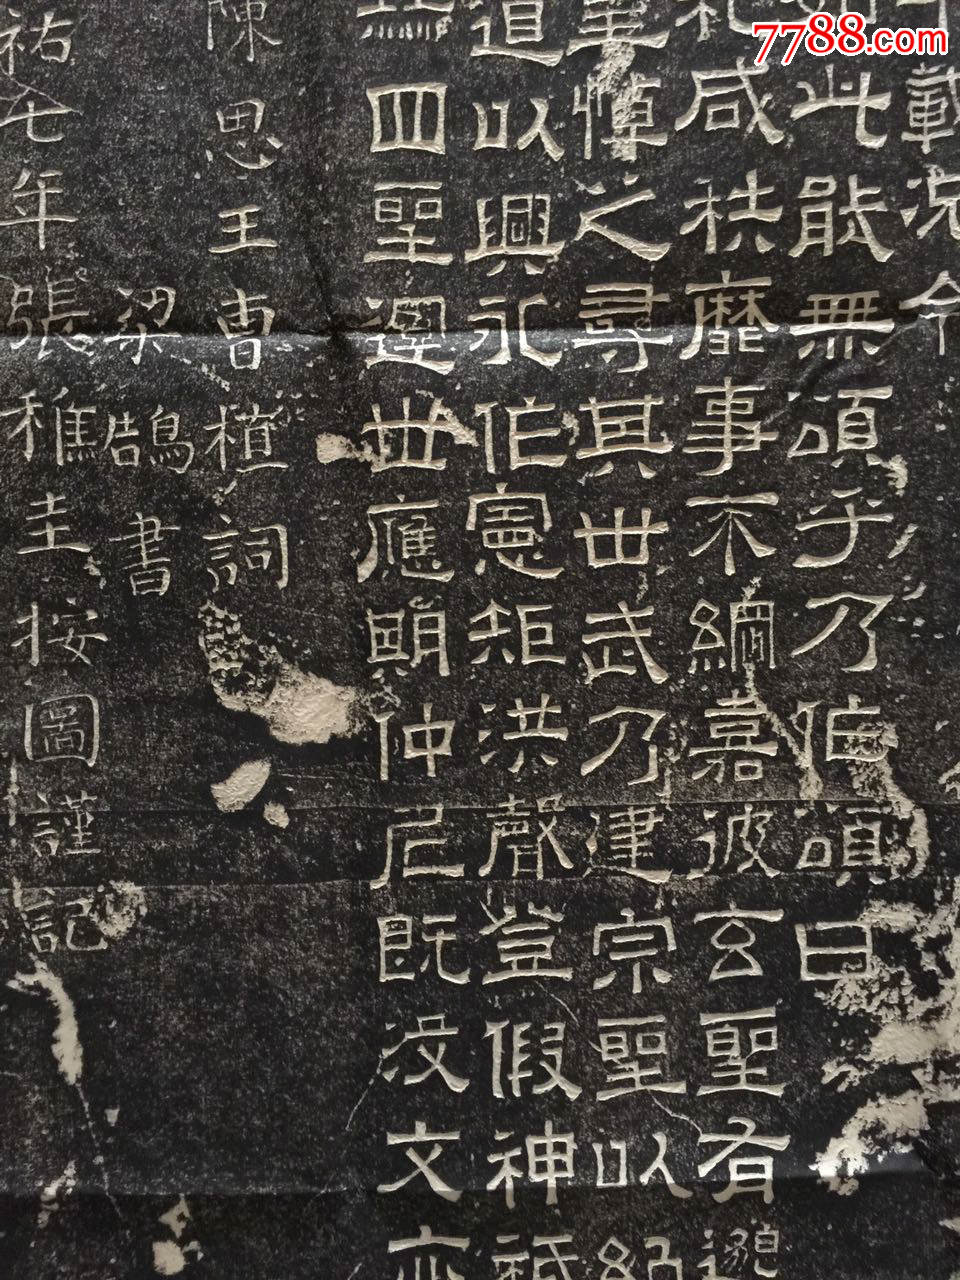 載況今
如此能無頌乎乃作頌曰
礼咸秩靡事不綱嘉彼玄聖有邈
悼之尋其世武乃建宗聖以紹
道以興永作憲矩洪聲登假神祇
四聖運世應期仲尼既沒文亦
陳思王曹植詞
梁鵠書
祐七年張稚圭按圖謹記
7788.com